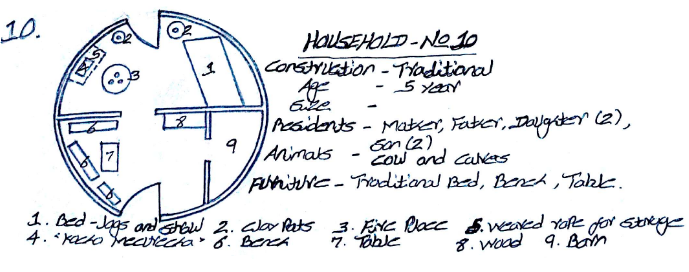 10.
HOUSEHOLD - No 10
Construction - Traditional
Age - 5 year
Size -
Residents - Mother, Father, Daughter (2),
Son (2)
Animals - cow and calves
Furniture - Traditional Bed, Bench, Table.
2 2
5
3 1
6 8
7 9
6
6
1. Bed - Logs and straw 2. Clay Pots 3. Fire Place 5. weaved rope for storage
4. 6. Bench 7. Table 8. wood 9. Barn